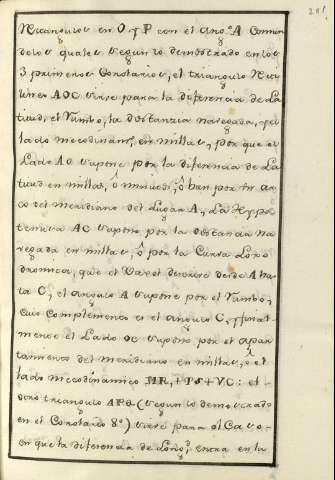 201
Rectangulos en O, y P con el ang.º A comun
de los quales segun lo demostrado en los
3 primeros Corolarios, el triangulo Rec
lineo AOC sirve para la diferencia de La
titud, el Rumbo, la distanzia navegada, y el
lado mecodinam.º en millas, por que el
Lado AO supone por la diferencia de La
titud en millas, ô minutos, ô bien por un ar
co del meridiano del Lugar A, La Hypo
tenusa AC supone por la distancia na
vegada en millas, ô por la Curva Loxo
dromica, que el Vagel descrive desde A has
ta C, el angulo A supone por el Rumbo,
Cuio Complemento es el angulo C, y final
mente el Lado OC supone por el apar
tamiento del meridiano en millas, ô el
lado mecodinamico MR, + TS + VC: el
otro triangulo APQ (segun lo demostrado
en el Corolario 8º) sirve para el Caso
en que la diferencia de Long.d entra en la